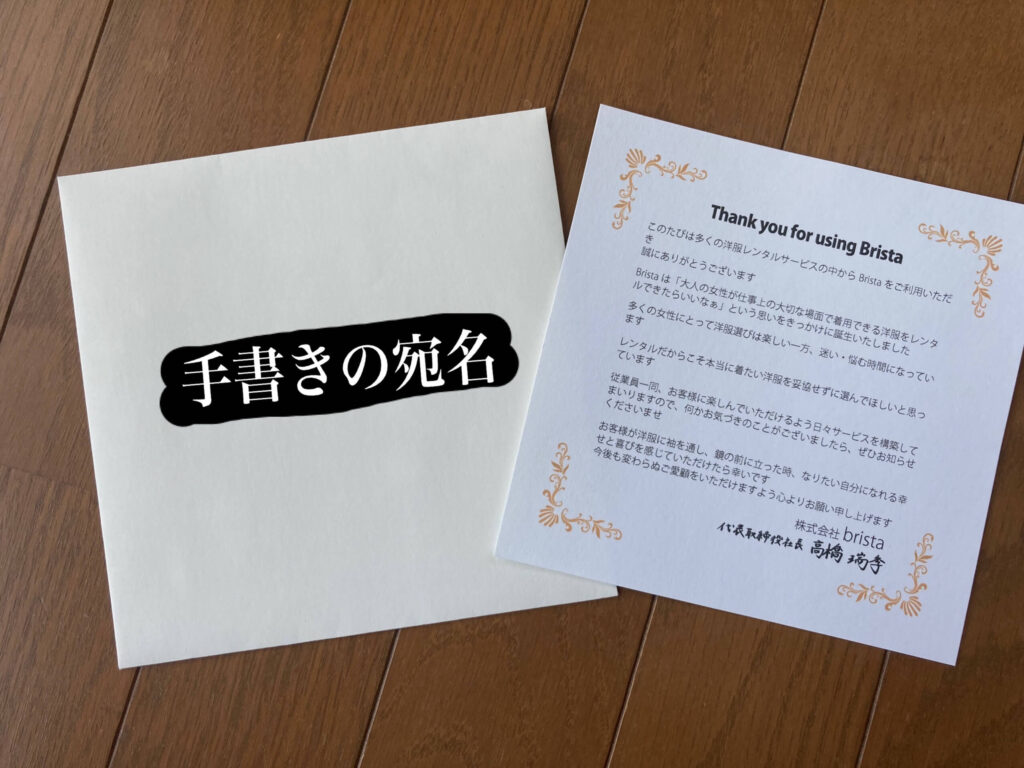 手書きの宛名
Thank you for using Brista
このたびは多くの洋服レンタルサービスの中から Brista をご利用いただ
き
誠にありがとうございます
Brista は「大人の女性が仕事上の大切な場面で着用できる洋服をレンタ
ルできたらいいなぁ」という思いをきっかけに誕生いたしました
多くの女性にとって洋服選びは楽しい一方、迷い・悩む時間になってい
ます
レンタルだからこそ本当に着たい洋服を妥協せずに選んでほしいと思っ
ています
従業員一同、お客様に楽しんでいただけるよう日々サービスを構築して
まいりますので、何かお気づきのことがございましたら、ぜひお知らせ
くださいませ
お客様が洋服に袖を通し、鏡の前に立った時、なりたい自分になれる幸
せと喜びを感じていただけたら幸いです
今後も変わらぬご愛顧をいただけますよう心よりお願い申し上げます
株式会社 brista
代表取締役社長 高橋 瑞季